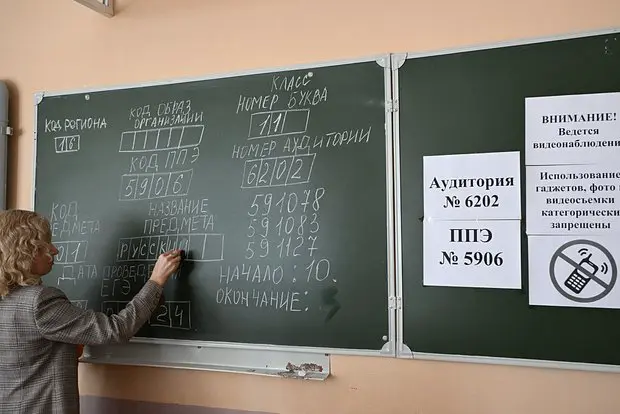 КОД РЕГИОНА
16
КОД ОБРАЗ.
ОРГАНИЗАЦИИ
КЛАСС
НОМЕР БУКВА
11
КОД ППЭ
5906
НОМЕР АУДИТОРИИ
6202
КОД
ПРЕДМЕТА
01
НАЗВАНИЕ
ПРЕДМЕТА
РУССКИЙ
591078
591083
591127
ДАТА ПРОВЕДЕ
ЕГЭ
24
НАЧАЛО: 10.
ОКОНЧАНИЕ:
Аудитория
№ 6202
ППЭ
№ 5906
ВНИМАНИЕ!
Ведется
видеонаблюдени
Использование
гаджетов, фото
видеосъемки
категорически
запрещены